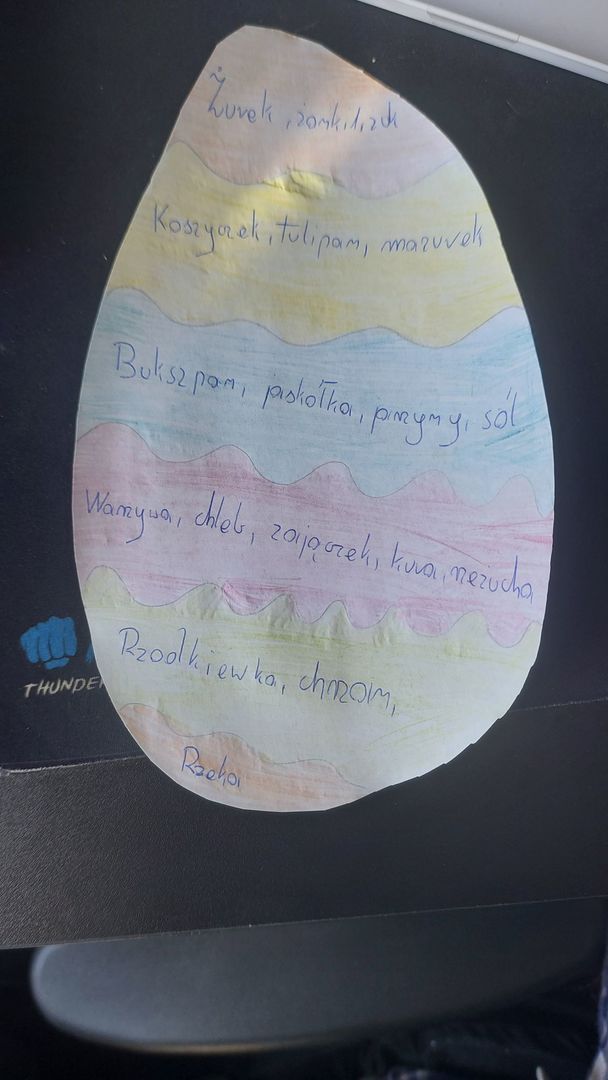 Żurek, żonkil, żuk
Koszyczek, tulipan, mazurek
Bukszpan, jaskółka, przymy, sól
Warzywa, chleb, zajączek, kura, rzeżucha
Rzodkiewka, chrzan,
Rzeka
THUNDE